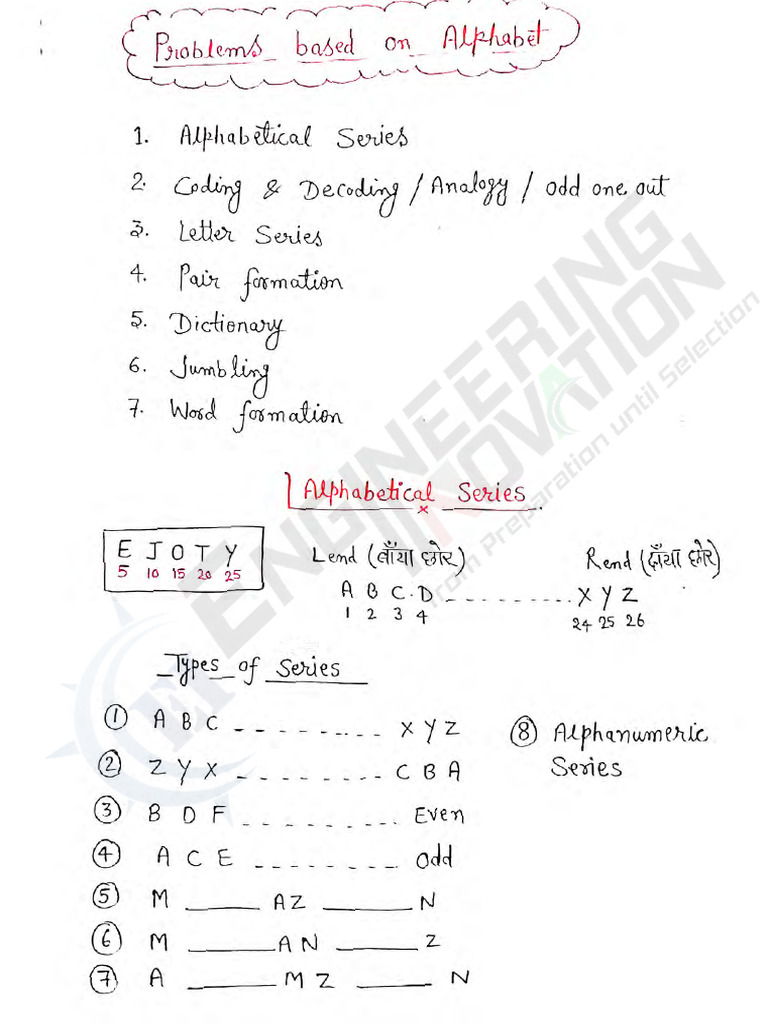 Problems based on Alphabet
1. Alphabetical Series
2. Coding & Decoding / Analogy / odd one out
3. Letter Series
4. Pair formation
5. Dictionary
6. Jumbling
7. Word formation
Alphabetical Series
E J O T Y
5 10 15 20 25
Lend (बाँया छोर)
Rend (दाँया छोर)
A B C D - - - - - - - - - - X Y Z
1 2 3 4
24 25 26
Types of Series
① A B C - - - - - - - - X Y Z
② Z Y X - - - - - - - - - C B A
③ B D F - - - - - - - - - - Even
④ A C E - - - - - - - - Odd
⑤ M _____ AZ _____ N
⑥ M _____ AN _____ Z
⑦ A _____ MZ _____ N
⑧ Alphanumeric
Series
ENGINEERING
INNOVATION
From Preparation until Selection
EI